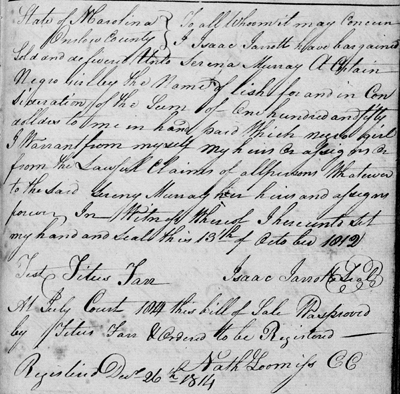 State of N Carolina } To all whom it may Concern
Onslow County } I Isaac Jarrott have bargained
Sold and delivered Unto Serena Murray A Certain
Negro girl by the Name of lish for and in Con
Sideration of the Sum of One hundred and fifty
dollers to me in hand paid Which negro girl
I Warrant from my self my heirs or assigns or
from the Lawfull Claims of all persons Whatever
to the said Sereny Murray her heirs and assigns
forever In Witness Whereof I hereunto Set
my hand and Seal this 13th of October 1812
Test Titus Farr Isaac Jarrott Seal
At July Court 1814 this bill of Sale Was proved
by Titus Farr & Ordered to be Registered
Registered Decr 26th 1814 Nath Loomiss CC